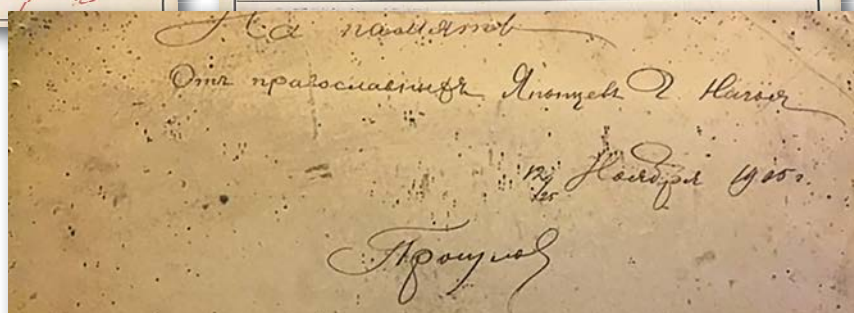 На память
Отъ православныхъ Японцевъ г. Нагоя
12/25 Ноября 1905 г.